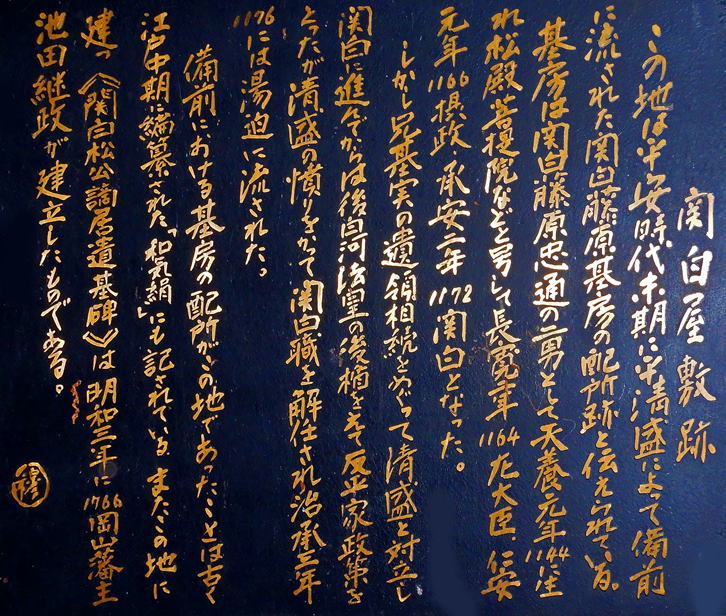 関白屋敷跡
この地は平安時代末期に平清盛によって備前
に流された関白藤原基房の配所跡と伝えられている。
基房は関白藤原忠通の二男として天養元年1144に生
れ松殿、菩提院などと号して長寛二年1164左大臣、仁安
元年1166摂政 承安二年1172関白となった。
しかし兄基実の遺領相続をめぐって清盛と対立し
関白に進んでからは後白河法皇の後楯をえて反平家政策を
とったが清盛の憤りをかって関白職を解任され治承三年
1176には湯迫に流された。
備前における基房の配所がこの地であったことは古く
江戸中期に編纂された「和気絹」にも記されている。またこの地に
建つ《関白松公謫居遺基碑》は明和三年に1766岡山藩主
池田継政が建立したものである。